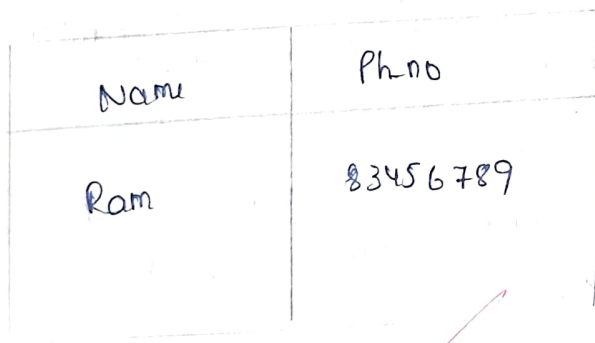 Name Ph.no
Ram 83456789